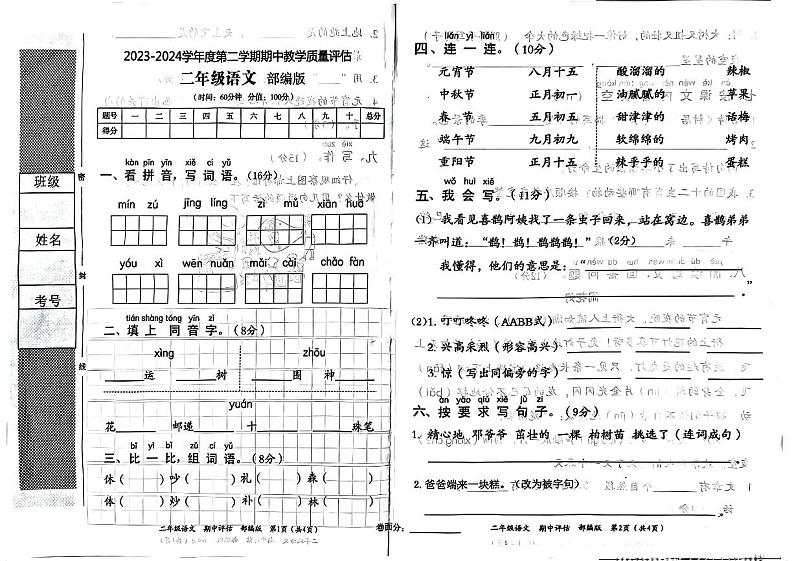 班级
姓名
考号
密
封
线
2023-2024学年度第二学期期中教学质量评估
二年级语文 部编版
(时间：60分钟 分值：100分)
题号 一 二 三 四 五 六 七 八 九 十 总分
得分
kàn pīn yīn xiě cí yǔ
一、看拼音，写词语。(16分)
mín zú jīng líng zǐ mù xiān huā
yóu xì wēn nuǎn mǎi cài chǎo fàn
tián shàng tóng yīn zì
二、填上同音字。(8分)
xìng zhōu
___运 ___树 ___围 神___
yuán
花___ 邮递___ 十___ ___珠笔
bǐ yì bǐ zǔ cí yǔ
三、比一比，组词语。(8分)
休( ) 吵( ) 礼( ) 森( )
体( ) 炒( ) 扎( ) 林( )
二年级语文 期中评估 部编版 第1页(共4页)
lián yì lián
四、连一连。(10分)
元宵节 八月十五 酸溜溜的 辣椒
中秋节 正月初一 油腻腻的 苹果
春节 五月初五 甜津津的 话梅
端午节 九月初九 软绵绵的 烤肉
重阳节 正月十五 辣乎乎的 蛋糕
wǒ huì xiě
五、我会写。(11分)
(1) 我看见喜鹊阿姨找了一条虫子回来，站在窝边。喜鹊弟弟
一齐叫道：“鹊！鹊！鹊鹊鹊！”(2分)
我懂得，他们的意思是：“___
___。”
(2)1. 叮叮咚咚(AABB式) ___ ___ ___
2. 兴高采烈(形容高兴) ___ ___ ___
3. 惊(写出同偏旁的字) ___ ___ ___
àn yāo qiú xiě jù zi
六、按要求写句子。(9分)
1. 精心地 邓爷爷 茁壮的 一棵 柏树苗 挑选了(连词成句)
2. 爸爸端来一块糕。(改为被字句)
卷面分：___
二年级语文 期中评估 部编版 第2页(共4页)